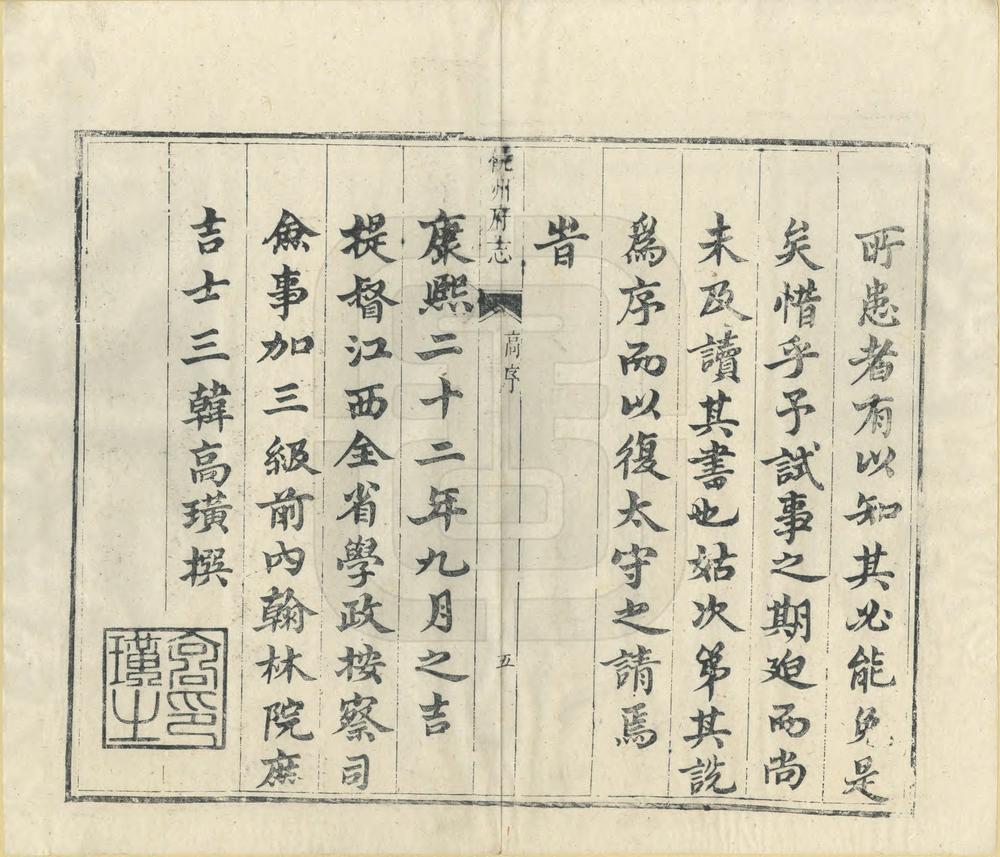 所患者有以知其必能免是
矣惜乎予試事之期迫而尚
未及讀其書也姑次第其說
爲序而以復太守之請焉
旹
饒州府志
高序
五
康熙二十二年九月之吉
提督江西全省學政按察司
僉事加三級前內翰林院庶
吉士三韓高璜撰
高印
璜士